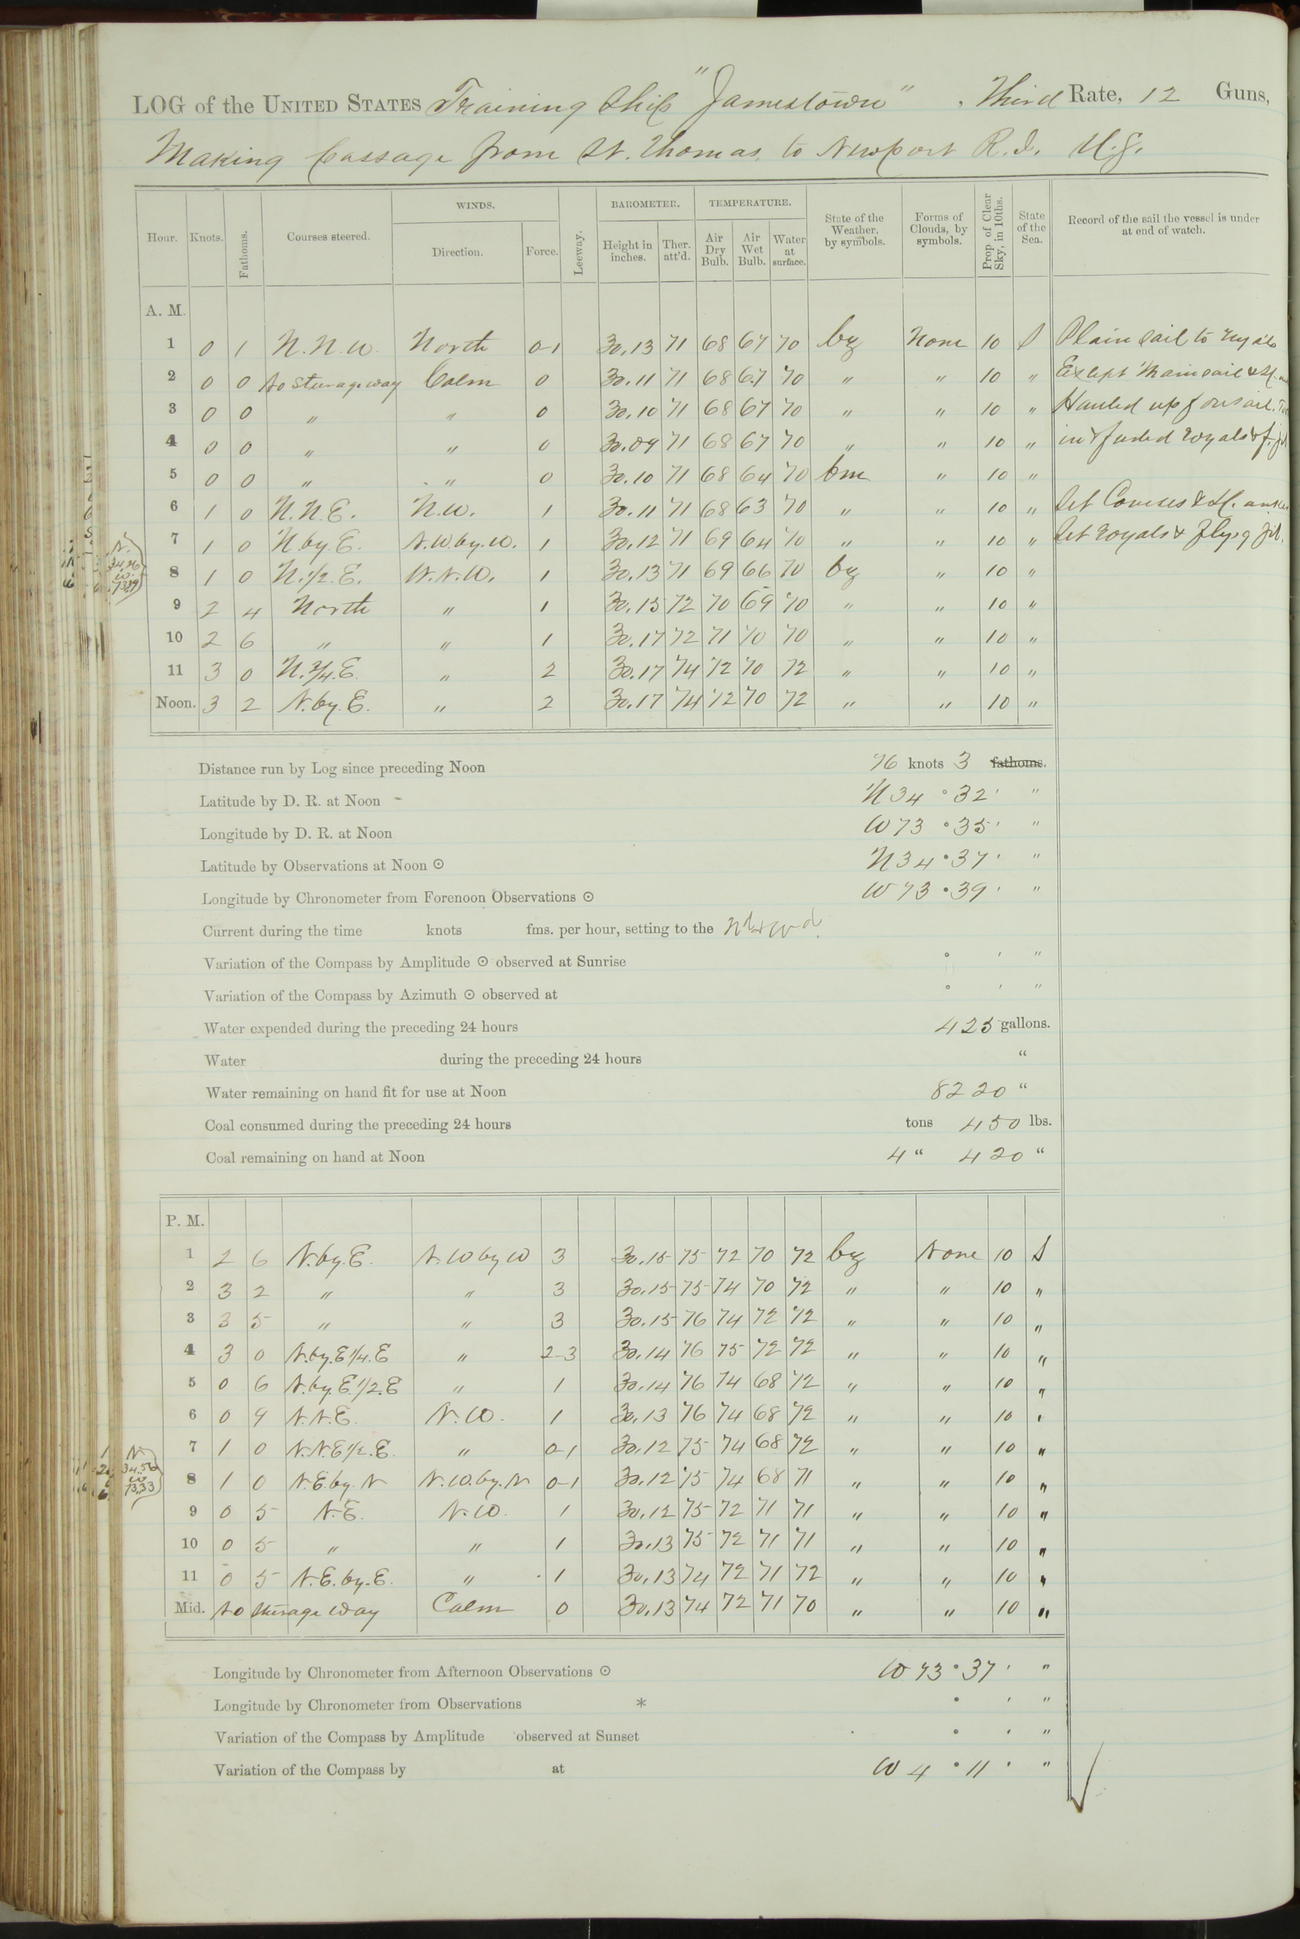 LOG of the UNITED STATES Training Ship "Jamestown", Third Rate, 12 Guns,
Making passage from St. Thomas to Newport R.I. U.S.
Hour. Knots. Fathoms. Courses steered. WINDS. Direction. Force. Leeway. BAROMETER. Height in inches. Ther. att'd. TEMPERATURE. Air Dry Bulb. Air Wet Bulb. Water at surface. State of the Weather, by symbols. Forms of Clouds, by symbols. Prop of Clear Sky, in 10ths. State of the Sea. Record of the sail the vessel is under at end of watch.
A. M.
1 0 1 N.N.W. North 0-1 30.13 71 68 67 70 bz None 10 S Plain sail to royals
2 0 0 No steerage way Calm 0 30.11 71 68 67 70 " " 10 " Except Mainsail &
3 0 0 " " 0 30.10 71 68 67 70 " " 10 " Hauled up foresail.
4 0 0 " " 0 30.09 71 68 67 70 " " 10 " in & furled royals & f.
5 0 0 " " 0 30.10 71 68 64 70 bm " 10 "
6 1 0 N.N.E. N.W. 1 30.11 71 68 63 70 " " 10 " Set Courses &
7 1 0 N.by.E. N.W.by.W. 1 30.12 71 69 64 70 " " 10 " Set royals & flyg jib.
8 1 0 N.1/2.E. W.N.W. 1 30.13 71 69 66 70 bz " 10 "
9 2 4 North " 1 30.15 72 70 69 70 " " 10 "
10 2 6 " " 1 30.17 72 71 70 70 " " 10 "
11 3 0 N.3/4.E. " 2 30.17 74 72 70 72 " " 10 "
Noon. 3 2 N.by.E. " 2 30.17 74 72 70 72 " " 10 "
Distance run by Log since preceding Noon 76 knots 3 fathoms.
Latitude by D. R. at Noon N 34 ° 32 ' "
Longitude by D. R. at Noon W 73 ° 35 ' "
Latitude by Observations at Noon ⊙ N 34 ° 37 ' "
Longitude by Chronometer from Forenoon Observations ⊙ W 73 ° 39 ' "
Current during the time knots fms. per hour, setting to the Nd & Wd.
Variation of the Compass by Amplitude ⊙ observed at Sunrise ° ' "
Variation of the Compass by Azimuth ⊙ observed at ° ' "
Water expended during the preceding 24 hours 425 gallons.
Water during the preceding 24 hours "
Water remaining on hand fit for use at Noon 8220 "
Coal consumed during the preceding 24 hours tons 450 lbs.
Coal remaining on hand at Noon 4 " 420 "
P. M.
1 2 6 N.by.E. N.W by W 3 30.15 75 72 70 72 bz None 10 S
2 3 2 " " 3 30.15 75 74 70 72 " " 10 "
3 3 5 " " 3 30.15 76 74 72 72 " " 10 "
4 3 0 N.by.E1/4.E " 2-3 30.14 76 75 72 72 " " 10 "
5 0 6 N.by.E.1/2.E " 1 30.14 76 74 68 72 " " 10 "
6 0 4 N.N.E. N.W. 1 30.13 76 74 68 72 " " 10 "
7 1 0 N.N.E1/2.E. " 0-1 30.12 75 74 68 72 " " 10 "
8 1 0 N.E.by.N N.W.by.N 0-1 30.12 75 74 68 71 " " 10 "
9 0 5 N.E. N.W. 1 30.12 75 72 71 71 " " 10 "
10 0 5 " " 1 30.13 75 72 71 71 " " 10 "
11 0 5 N.E.by.E. " 1 30.13 74 72 71 72 " " 10 "
Mid. No steerage way Calm 0 30.13 74 72 71 70 " " 10 "
Longitude by Chronometer from Afternoon Observations ⊙ W 73 ° 37 ' "
Longitude by Chronometer from Observations * ° ' "
Variation of the Compass by Amplitude observed at Sunset ° ' "
Variation of the Compass by at W 4 ° 11 ' "